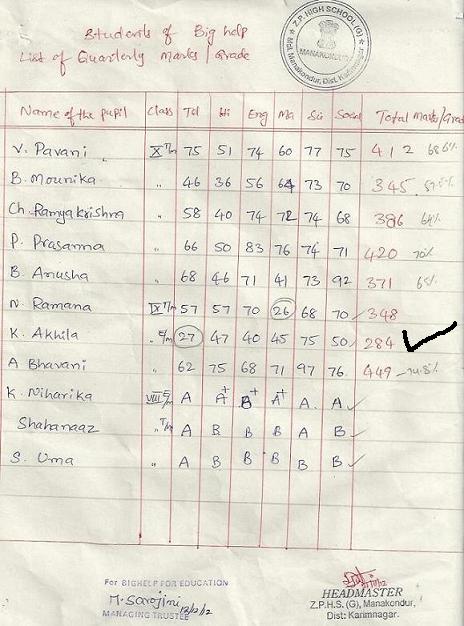 Students of Big help
List of Quarterly Marks/Grade
Z.P. HIGH SCHOOL (G)
MANAKONDUR
Mdl. Manakondur, Dist. Karimnagar.
Name of the pupil Class Tel Hi Eng Ma Sci Social Total Marks/Grade
V. Pavani X T/m 75 51 74 60 77 75 412 68.6%
B. Mounika " 46 36 56 64 73 70 345 57.5%
Ch. Ramyakrishna " 58 40 74 72 74 68 386 64%
P. Prasanna " 66 50 83 76 74 71 420 70%
B. Anusha " 68 46 71 41 73 92 371 65%
N. Ramana IX T/m 57 57 70 26 68 70 348
K. Akhila " E/m 27 47 40 45 75 50 284
A Bhavani " 62 75 68 71 97 76 449 74.8%
K. Niharika VIII E/m A A+ B+ A+ A A
Shahanaaz " T/m A B B B A B
S. Uma " A B B B B B
For BIGHELP FOR EDUCATION
M. Sarojini 13/2/12
MANAGING TRUSTEE
HEADMASTER
Z.P.H.S. (G), Manakondur,
Dist: Karimnagar.